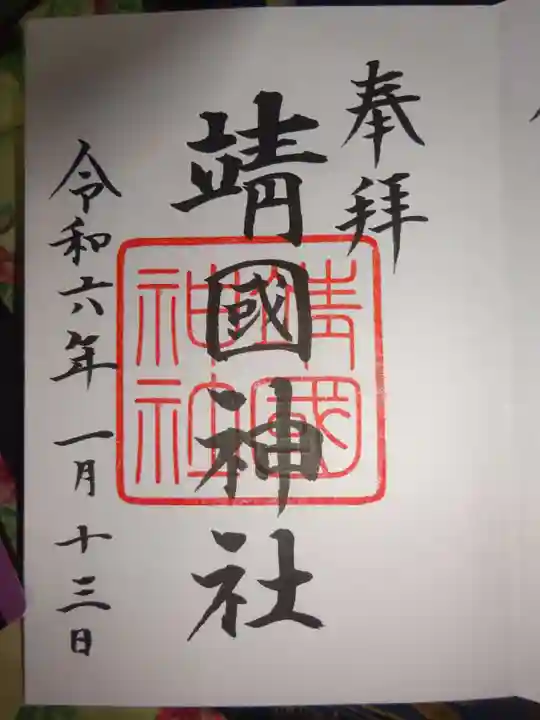 奉拜
靖國神社
靖國
神社
令和六年一月十三日